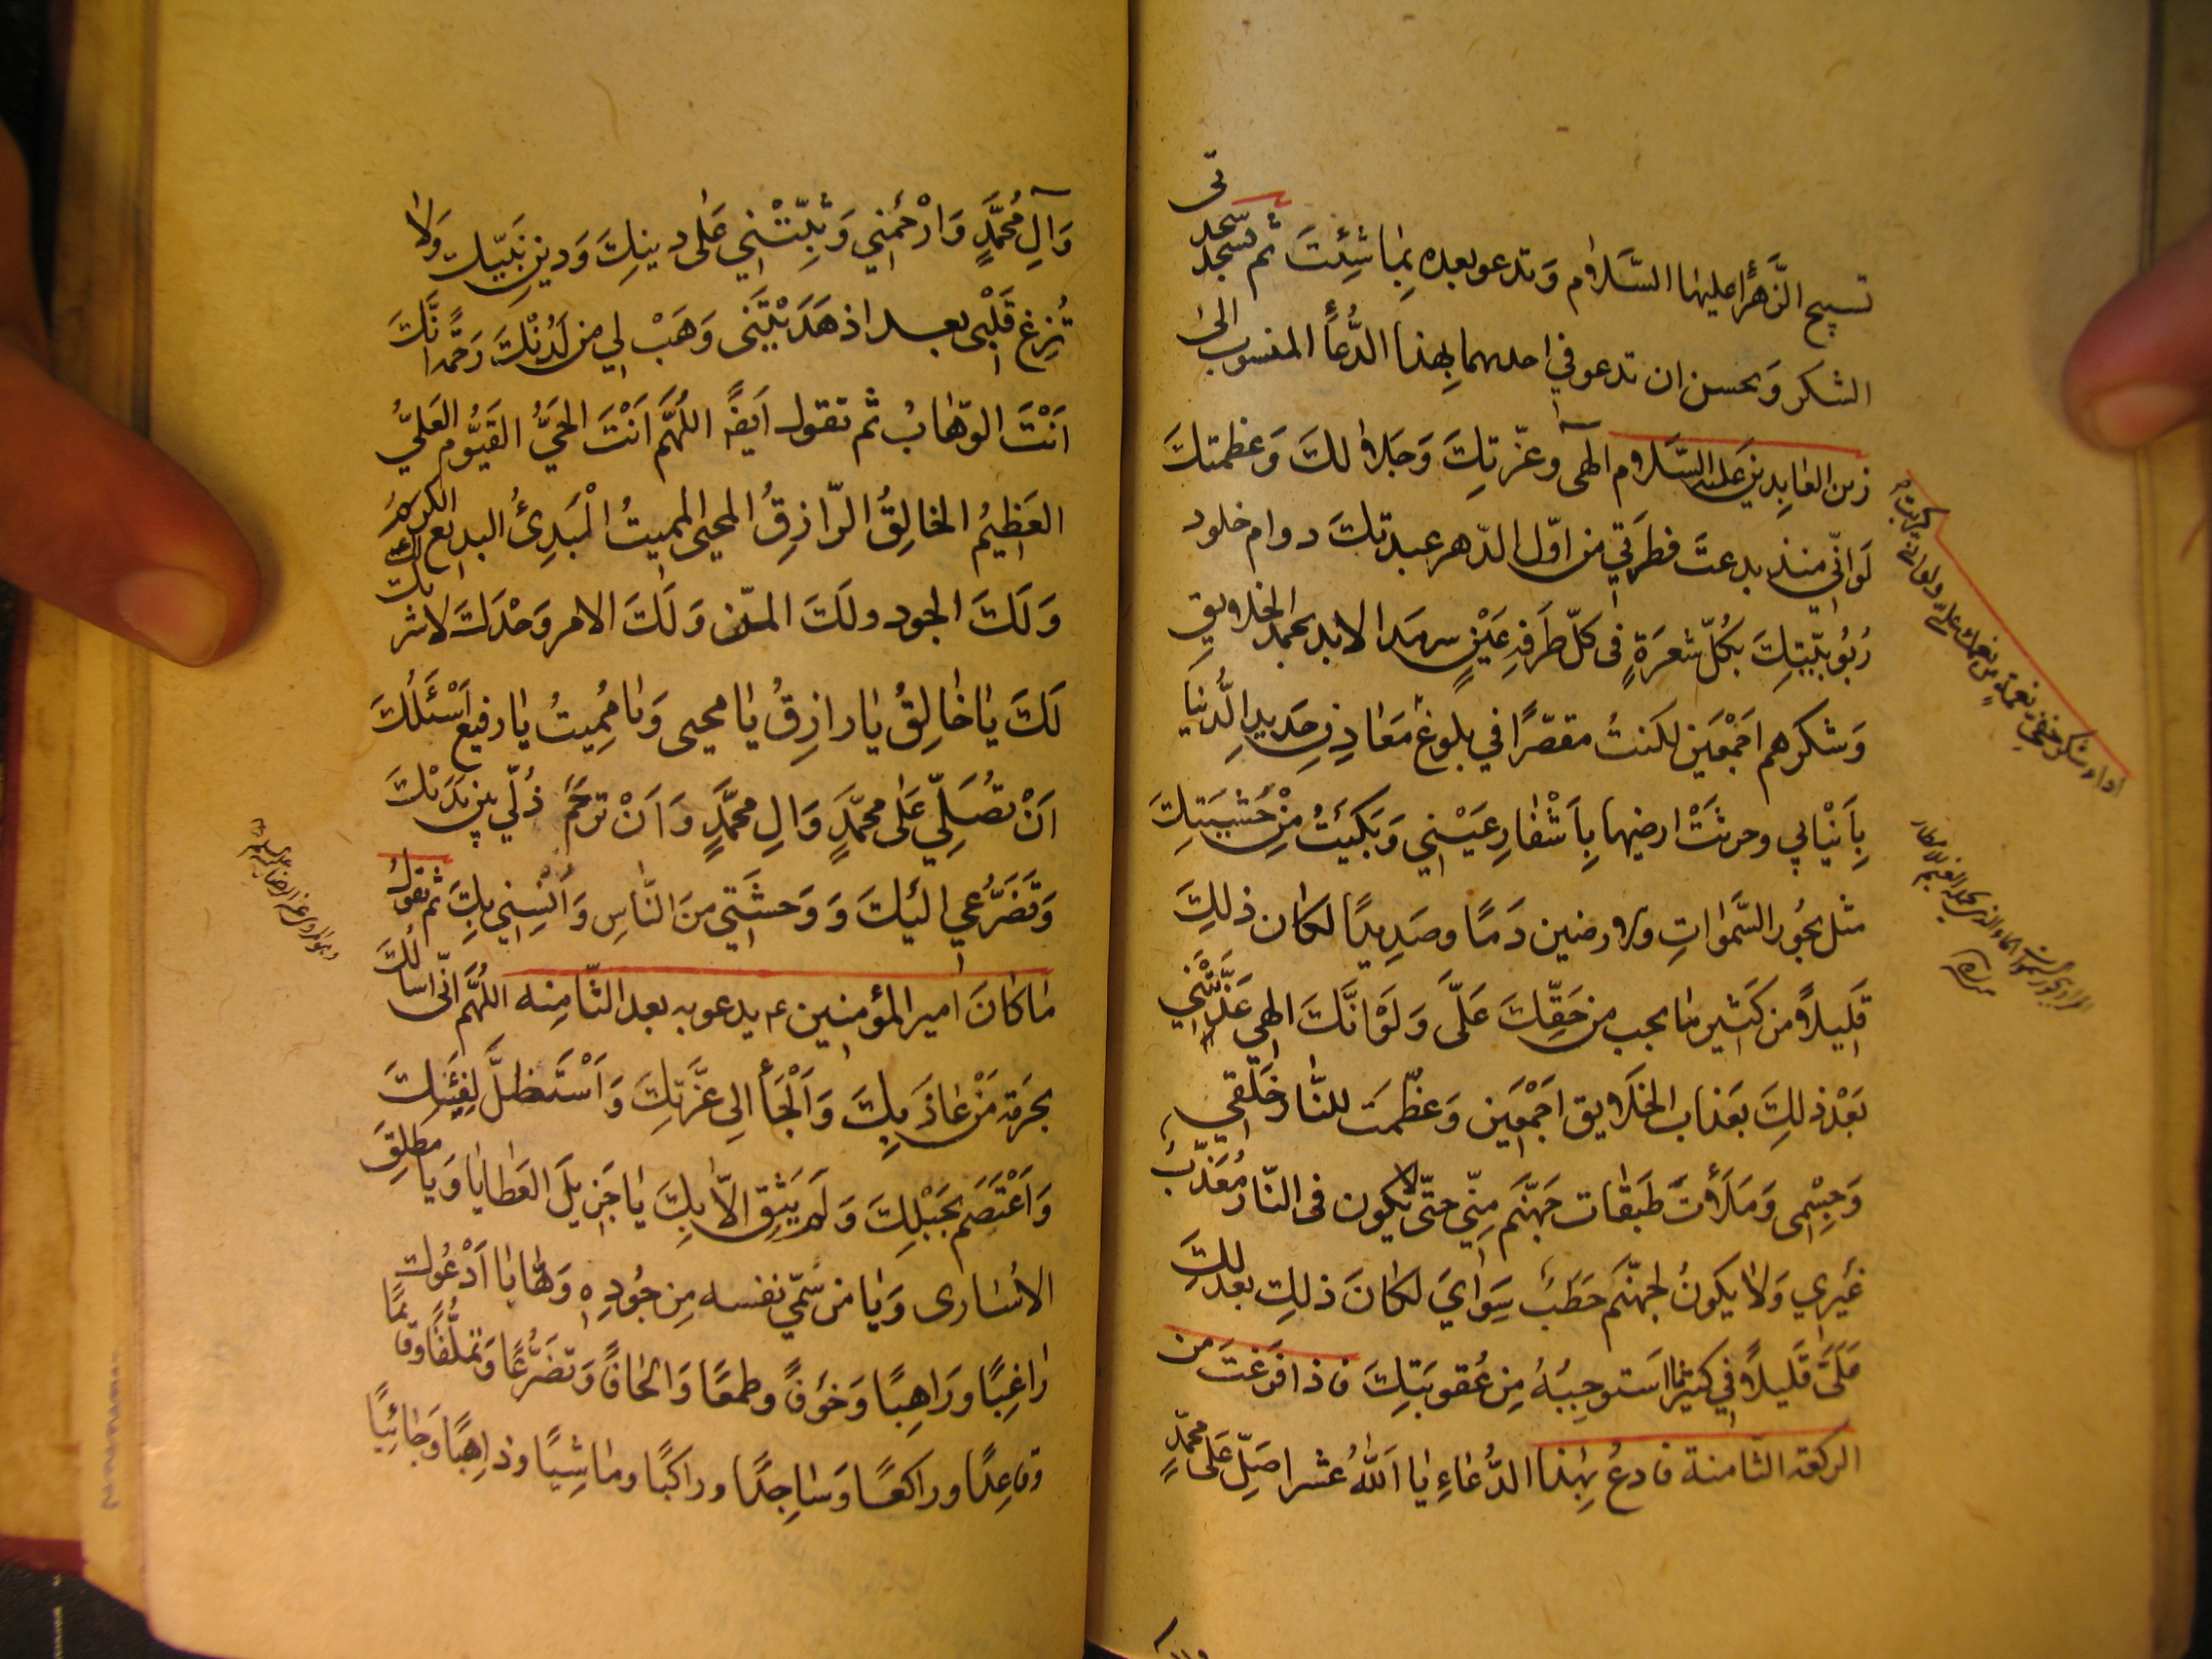 تسبيح الزَّهرٰاء عليها السَّلام وَتدعو بعده بِمٰا شِئْتَ ثم تسجد سجدتى
الشكر وَيحسن ان تدعو في احدهما بِهٰذا الدُّعٰاء المنسوب الىٰ
زين العٰابِدين عَليه السَّلام الٰهى وعزّتكَ وَجَلالكَ وَعظمتكَ
لَو انّى منذ بدعتَ فطرَتي من اوّل الدّهر عبدتكَ دوام خلود
رُبُوبيّتِكَ بكُلّ شعرَةٍ فى كلّ طَرفة عَيْنٍ سرمدا لابد بحمد الخلايق
وَشكرهم اجْمَعين لكنتُ مقصّرًا في بلوغ
اداء شكر خفىّ نعمةٍ من نعمك علىّ ولو انّى كربت
مَعٰادن حَديد الدُّنيٰا
بِأَنْيٰابي وحرثتْ ارضيها بِأَشْفٰارِ عَيْني وَبكيتُ مِنْ خَشْيَتِكَ
مثل بحُور السَّمٰوات والارضين دَمًا وصَديدًا لكٰان ذلكَ
قَليلاً من كَثير مٰا يجب من حَقّكَ عَلَىَّ وَلَوْ انَّكَ الهى عَذَّبْتَني
بَعْد ذلكَ بعَذاب الخَلايق اجْمَعين وَعظّمتَ للنّار خَلْقي
وَجِسْمى وَمَلَأْتَ طَبَقٰات جَهَنَّم مِنّى حتّى لا يكون فى النّار مُعَذَّبٌ
غَيْري وَلا يكونُ لجهنّم حَطَبٌ سِوٰايَ لكٰانَ ذلكَ بعدلكَ
عَلَىَّ قَليلاً في كثير مٰا اسَتوجبُهُ مِنْ عُقوبَتِكَ فاذا فَرغتَ من
الركعة الثّامنة فادعُ بِهٰذا الدُّعٰاءِ يٰا اَللّٰهُ عشرا صَلِّ عَلىٰ محمّدٍ
وَآلِ مُحَمَّدٍ وَارْحَمْني وَثَبِّتْني عَلىٰ دينِكَ وَدينِ نَبيّك وَلاٰ
تُزِغ قَلْبى بعد اذ هَدَيْتَنى وَهَبْ لي من لَدُنْكَ رَحْمة انَّكَ
انْتَ الوَهّٰابُ ثم تقول ايَضًا اللّهُمَّ انْتَ الحَىُّ القَيُّوم العَلِيُّ
العَظيمُ الخٰالِقُ الرّٰازِقُ المحيى المميتُ المبدِئُ البديع لك الكرَمُ
وَلَكَ الجود ولَكَ المنّ وَلَكَ الامر وَحْدَكَ لا شريك
لَكَ يٰا خٰالِقُ يٰا رازِقُ يٰا محيى وَيٰا مُمِيتُ يٰا رفيع اَسْئَلُكَ
اَنْ تُصَلِّيَ عَلىٰ محَمَّدٍ وَالِ محَمَّدٍ وَاَنْ تَرْحَمَ ذُلّي بين يَدَيْكَ
وَتَضَرُّعي اليْكَ وَوَحشَتي منَ النّٰاسِ وَاُنْسِي بِكَ ثم تقول
مٰا كٰانَ امير المؤمنين ع يدعو به بعد الثّامِنه اللّهُمَّ انّى اسألُكَ
بحُرمَة مَنْ عٰاذَ بِكَ وَلَجَأ الى عزَّتِكَ وَاسْتَظلَّ بفَيْئِكَ
وَاعْتَصَم بحَبْلِكَ وَلَم يَثِق الّا بِكَ يٰا جَزيلَ العَطٰايٰا وَيٰا مُطلِقَ
الاُسٰارى وَيٰا مَن سَمّى نفسه مِن جُودِه وَهّٰابًا اَدْعُوكَ
رٰاغِبًا ورَاهِبًا وَخَوْفًا وطمعًا وَالحٰافًا وَتضَرُّعًا وَتملُّقًا وقٰائمًا
وقٰاعِدًا وراكعًا وَسٰاجِدًا وراكبًا ومٰاشِيًا وذاهِبًا وَجٰائِيًا